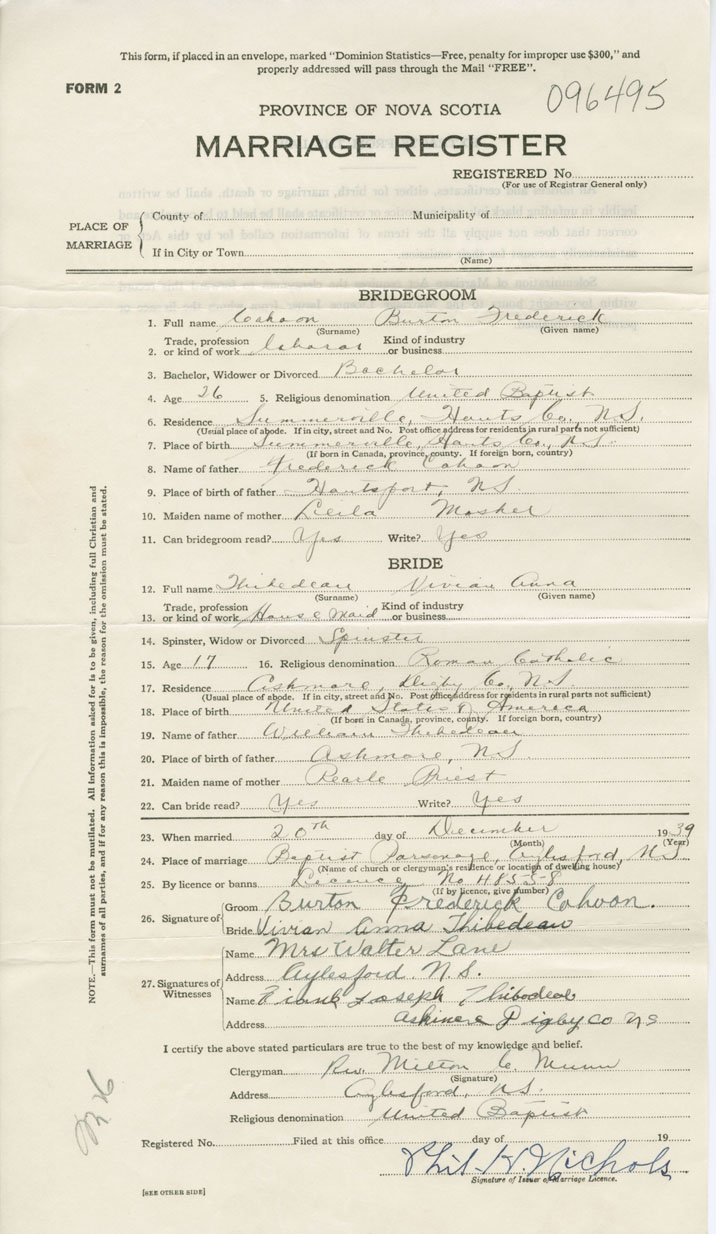 This form, if placed in an envelope, marked "Dominion Statistics—Free, penalty for improper use $300," and
properly addressed will pass through the Mail "FREE".
FORM 2
096495
PROVINCE OF NOVA SCOTIA
MARRIAGE REGISTER
REGISTERED No.
(For use of Registrar General only)
PLACE OF MARRIAGE
County of Municipality of
If in City or Town
(Name)
BRIDEGROOM
1. Full name Cohoon Burton Frederick
(Surname) (Given name)
Trade, profession Kind of industry
2. or kind of work Laborer or business
3. Bachelor, Widower or Divorced Bachelor
4. Age 26 5. Religious denomination United Baptist
6. Residence Summerville, Hants Co., N.S.
(Usual place of abode. If in city, street and No. Post office address for residents in rural parts not sufficient)
7. Place of birth Summerville, Hants Co., N.S.
(If born in Canada, province, county. If foreign born, country)
8. Name of father Frederick Cohoon
9. Place of birth of father Hantsport, N.S.
10. Maiden name of mother Leila Mosher
11. Can bridegroom read? Yes Write? Yes
BRIDE
12. Full name Thibedeau Vivian Anna
(Surname) (Given name)
Trade, profession Kind of industry
13. or kind of work House Maid or business
14. Spinster, Widow or Divorced Spinster
15. Age 17 16. Religious denomination Roman Catholic
17. Residence Ashmore, Digby Co., N.S
(Usual place of abode. If in city, street and No. Post office address for residents in rural parts not sufficient)
18. Place of birth United States of America
(If born in Canada, province, county. If foreign born, country)
19. Name of father William Thibedeau
20. Place of birth of father Ashmore, N.S.
21. Maiden name of mother Pearle Priest
22. Can bride read? Yes Write? Yes
23. When married 20th day of December 1939
(Month) (Year)
24. Place of marriage Baptist Parsonage, Aylesford, N.S
(Name of church or clergyman's residence or location of dwelling house)
25. By licence or banns Licence No 48558
(If by licence, give number)
26. Signature of
Groom Burton Frederick Cohoon.
Bride Vivian Anna Thibedeau
27. Signatures of Witnesses
Name Mrs Walter Lane
Address Aylesford N.S.
Name Frank Joseph Thibodeau
Address Digby Co NS
I certify the above stated particulars are true to the best of my knowledge and belief.
Clergyman Rev. Milton C. Munn
(Signature)
Address Aylesford, N.S.
Religious denomination United Baptist
Registered No. Filed at this office day of 19
Phil H. Nichols
Signature of Issuer of Marriage Licence.
[SEE OTHER SIDE]
NOTE.—This form must not be mutilated. All information asked for is to be given, including full Christian and
surnames of all parties, and if for any reason this is impossible, the reason for the omission must be stated.